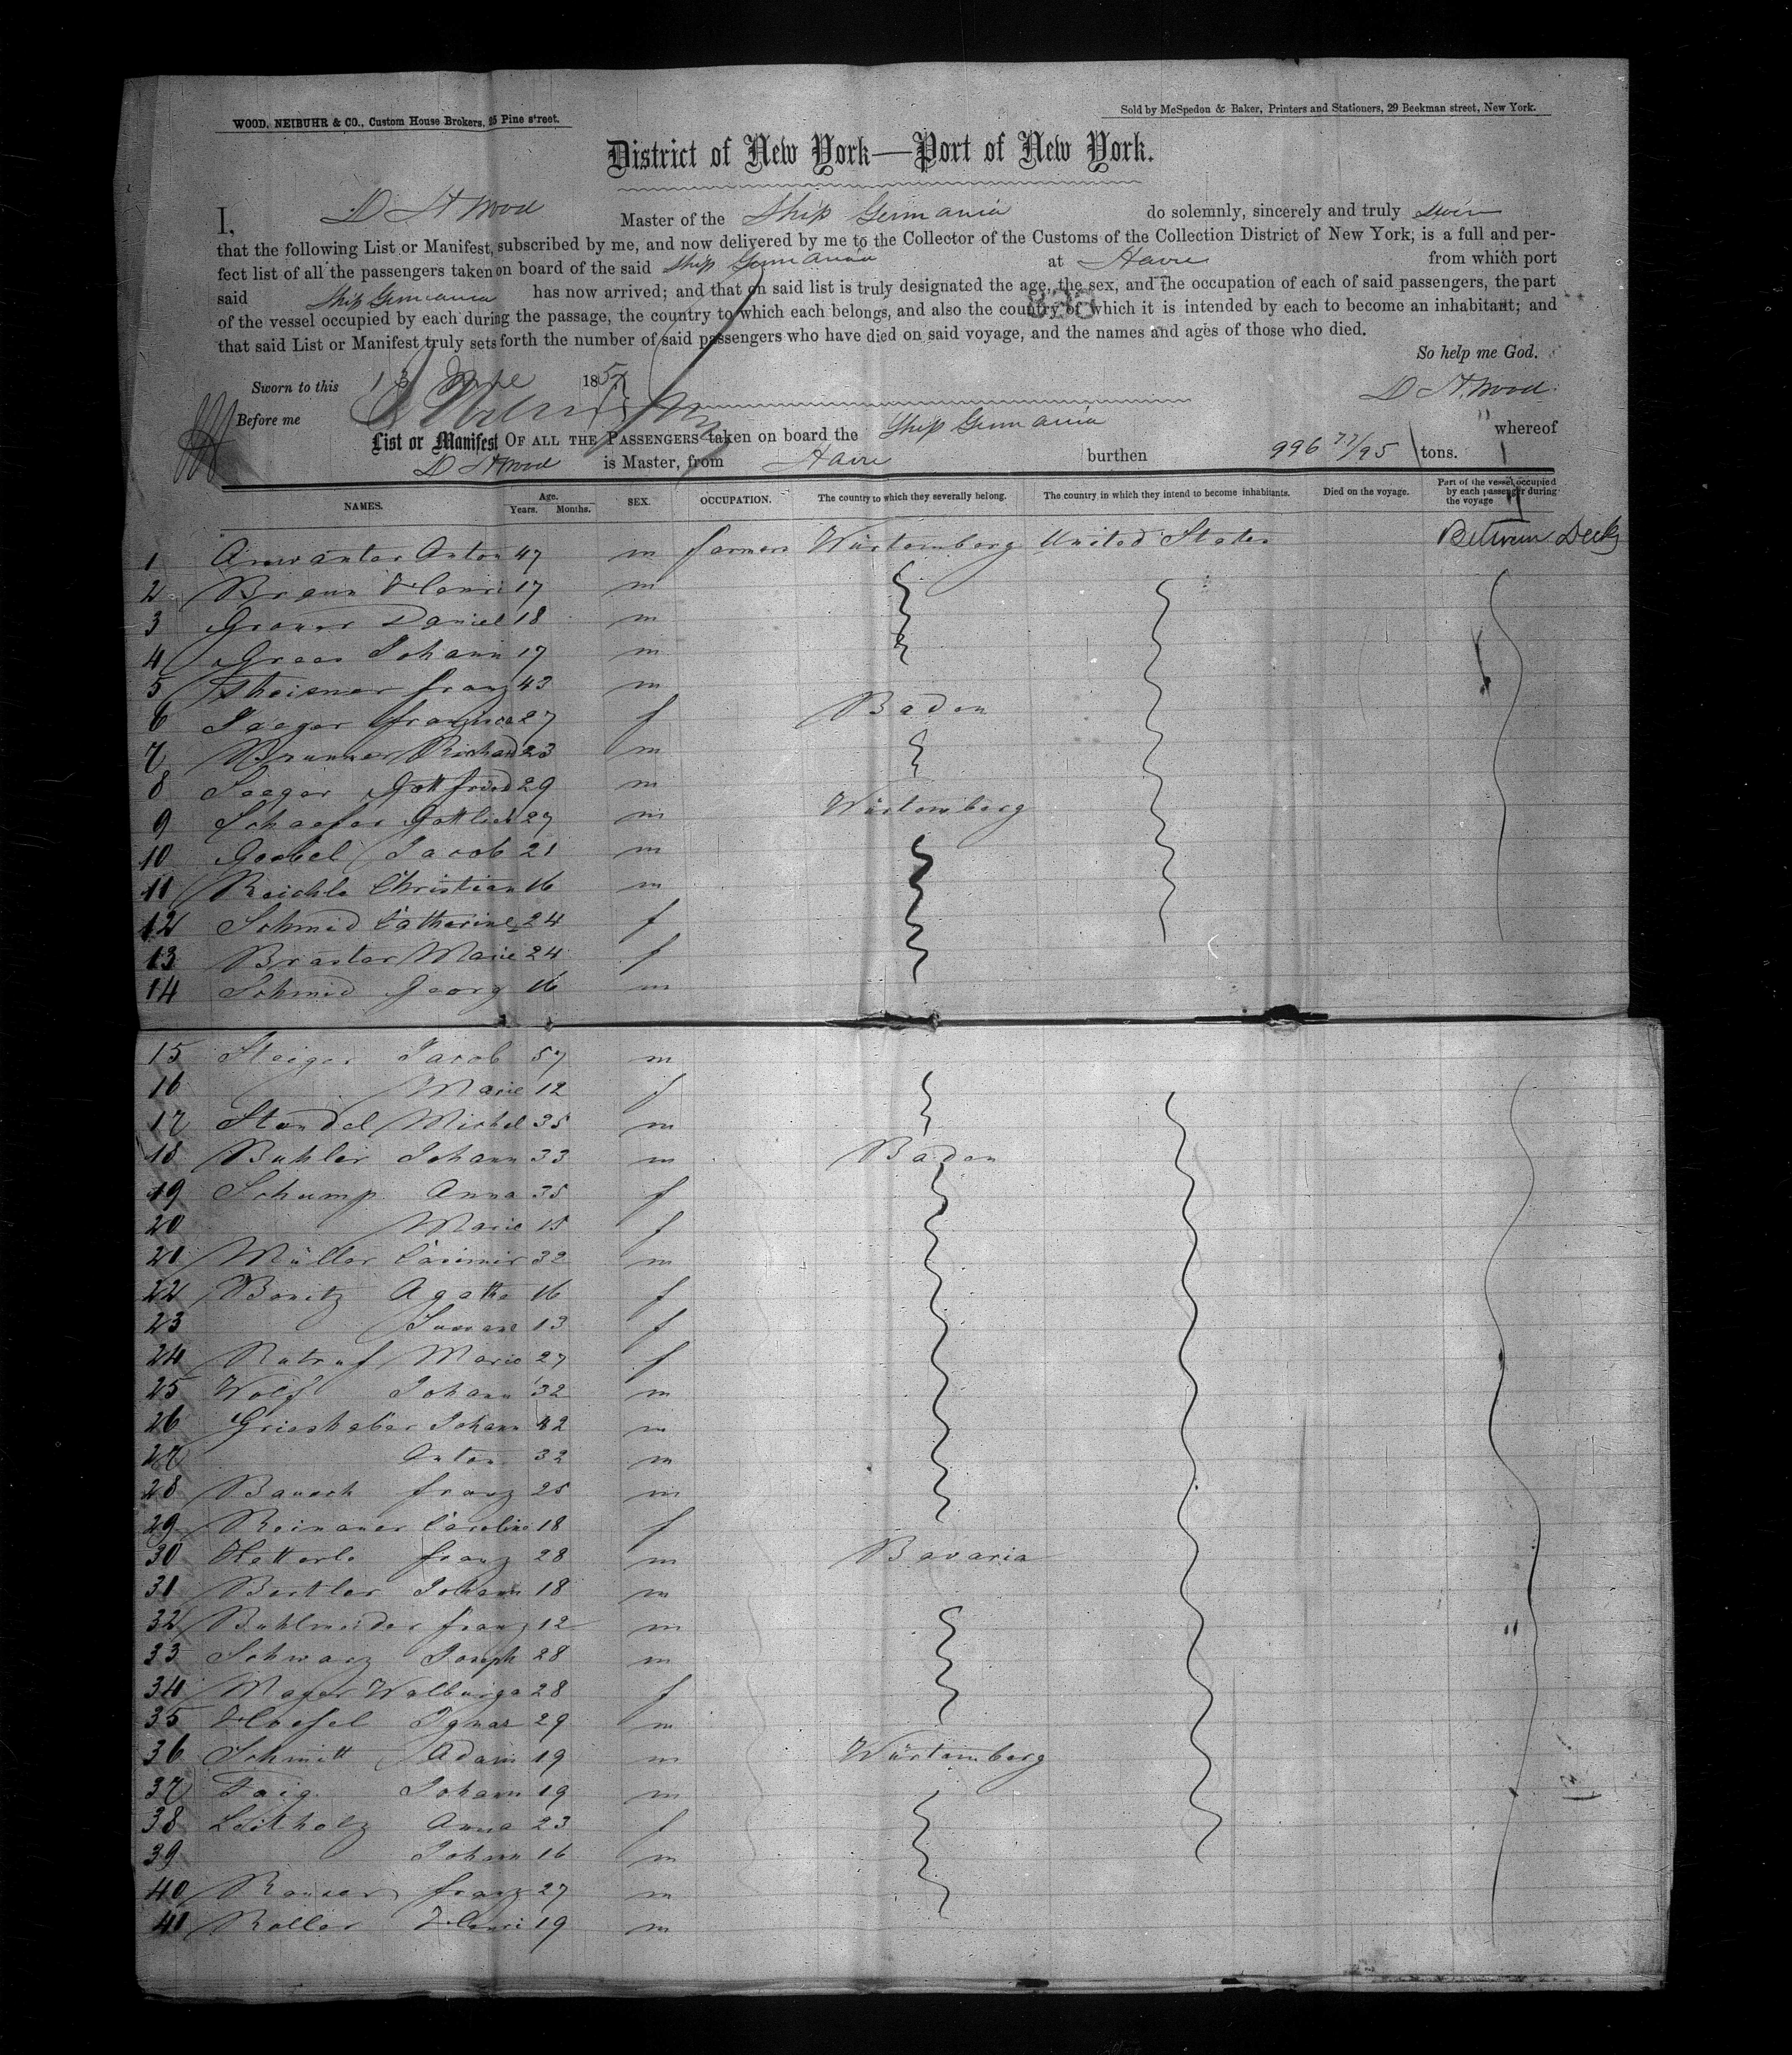 WOOD, NEIBUHR & CO., Custom House Brokers, 25 Pine street.
Sold by McSpedon & Baker, Printers and Stationers, 29 Beekman street, New York.
District of New York—Port of New York.
I, D H Wood Master of the Ship Germania do solemnly, sincerely and truly
that the following List or Manifest, subscribed by me, and now delivered by me to the Collector of the Customs of the Collection District of New York, is a full and per-
fect list of all the passengers taken on board of the said Ship Germania at Havre from which port
said Ship Germania has now arrived; and that on said list is truly designated the age, the sex, and the occupation of each of said passengers, the part
of the vessel occupied by each during the passage, the country to which each belongs, and also the country of which it is intended by each to become an inhabitant; and
that said List or Manifest truly sets forth the number of said passengers who have died on said voyage, and the names and ages of those who died.
So help me God.
Sworn to this 13 185
D H Wood
Before me
List or Manifest OF ALL THE PASSENGERS taken on board the Ship Germania whereof
D H Wood is Master, from Havre burthen 996 77/95 tons.
NAMES. Age. Years. Months. SEX. OCCUPATION. The country to which they severally belong. The country in which they intend to become inhabitants. Died on the voyage. Part of the vessel occupied by each passenger during the voyage
1 Anton 47 m farmers Würtemberg United States Between Decks
2 Braun Henri 17 m
3 Daniel 18 m
4 Johann 17 m
5 franz 43 m
6 Jaeger 27 f Baden
7 Brunner Richard 23 m
8 Jaeger Gottfried 29 m
9 Schaefer Gottlieb 27 m Würtemberg
10 Goebel Jacob 21 m
11 Reichle Christian 16 m
12 Schmid Catherine 24 f
13 Marie 24 f
14 Schmid Georg 16 m
15 Steiger Jacob 57 m
16 Marie 12 f
17 Standel Michel 35 m
18 Buhler Johann 33 m Baden
19 Schump Anna 35 f
20 Marie 15 f
21 Müller Casimir 32 m
22 Bonitz Agatha 16 f
23 13 f
24 Marie 27 f
25 Wolf Johann 32 m
26 Grieshaber Johann 42 m
27 Anton 32 m
28 franz 25 m
29 Reinauer Caroline 18 f
30 Hetterle franz 28 m Bavaria
31 Bertler Johann 18 m
32 franz 12 m
33 Schwarz Joseph 28 m
34 Mayer Walburga 28 f
35 Hoefel Ignaz 29 m
36 Schmitt Adam 19 m Würtemberg
37 Faig Johann 19 m
38 Leitholz Anna 23 f
39 Johann 16 m
40 franz 27 m
41 Roller Henri 19 m